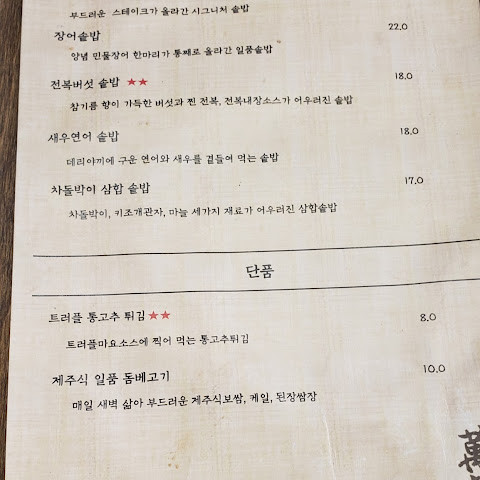 부드러운 스테이크가 올라간 시그니처 솥밥
장어솥밥 22.0
양념 민물장어 한마리가 통째로 올라간 일품솥밥
전복버섯 솥밥 ★★ 18.0
참기름 향이 가득한 버섯과 찐 전복, 전복내장소스가 어우러진 솥밥
새우연어 솥밥 18.0
데리야끼에 구운 연어와 새우를 곁들여 먹는 솥밥
차돌박이 삼합 솥밥 17.0
차돌박이, 키조개관자, 마늘 세가지 재료가 어우러진 삼합솥밥
단품
트러플 통고추 튀김★★ 8.0
트러플마요소스에 찍어 먹는 통고추튀김
제주식 일품 돔베고기 10.0
매일 새벽 삶아 부드러운 제주식보쌈, 케일, 된장쌈장
萬